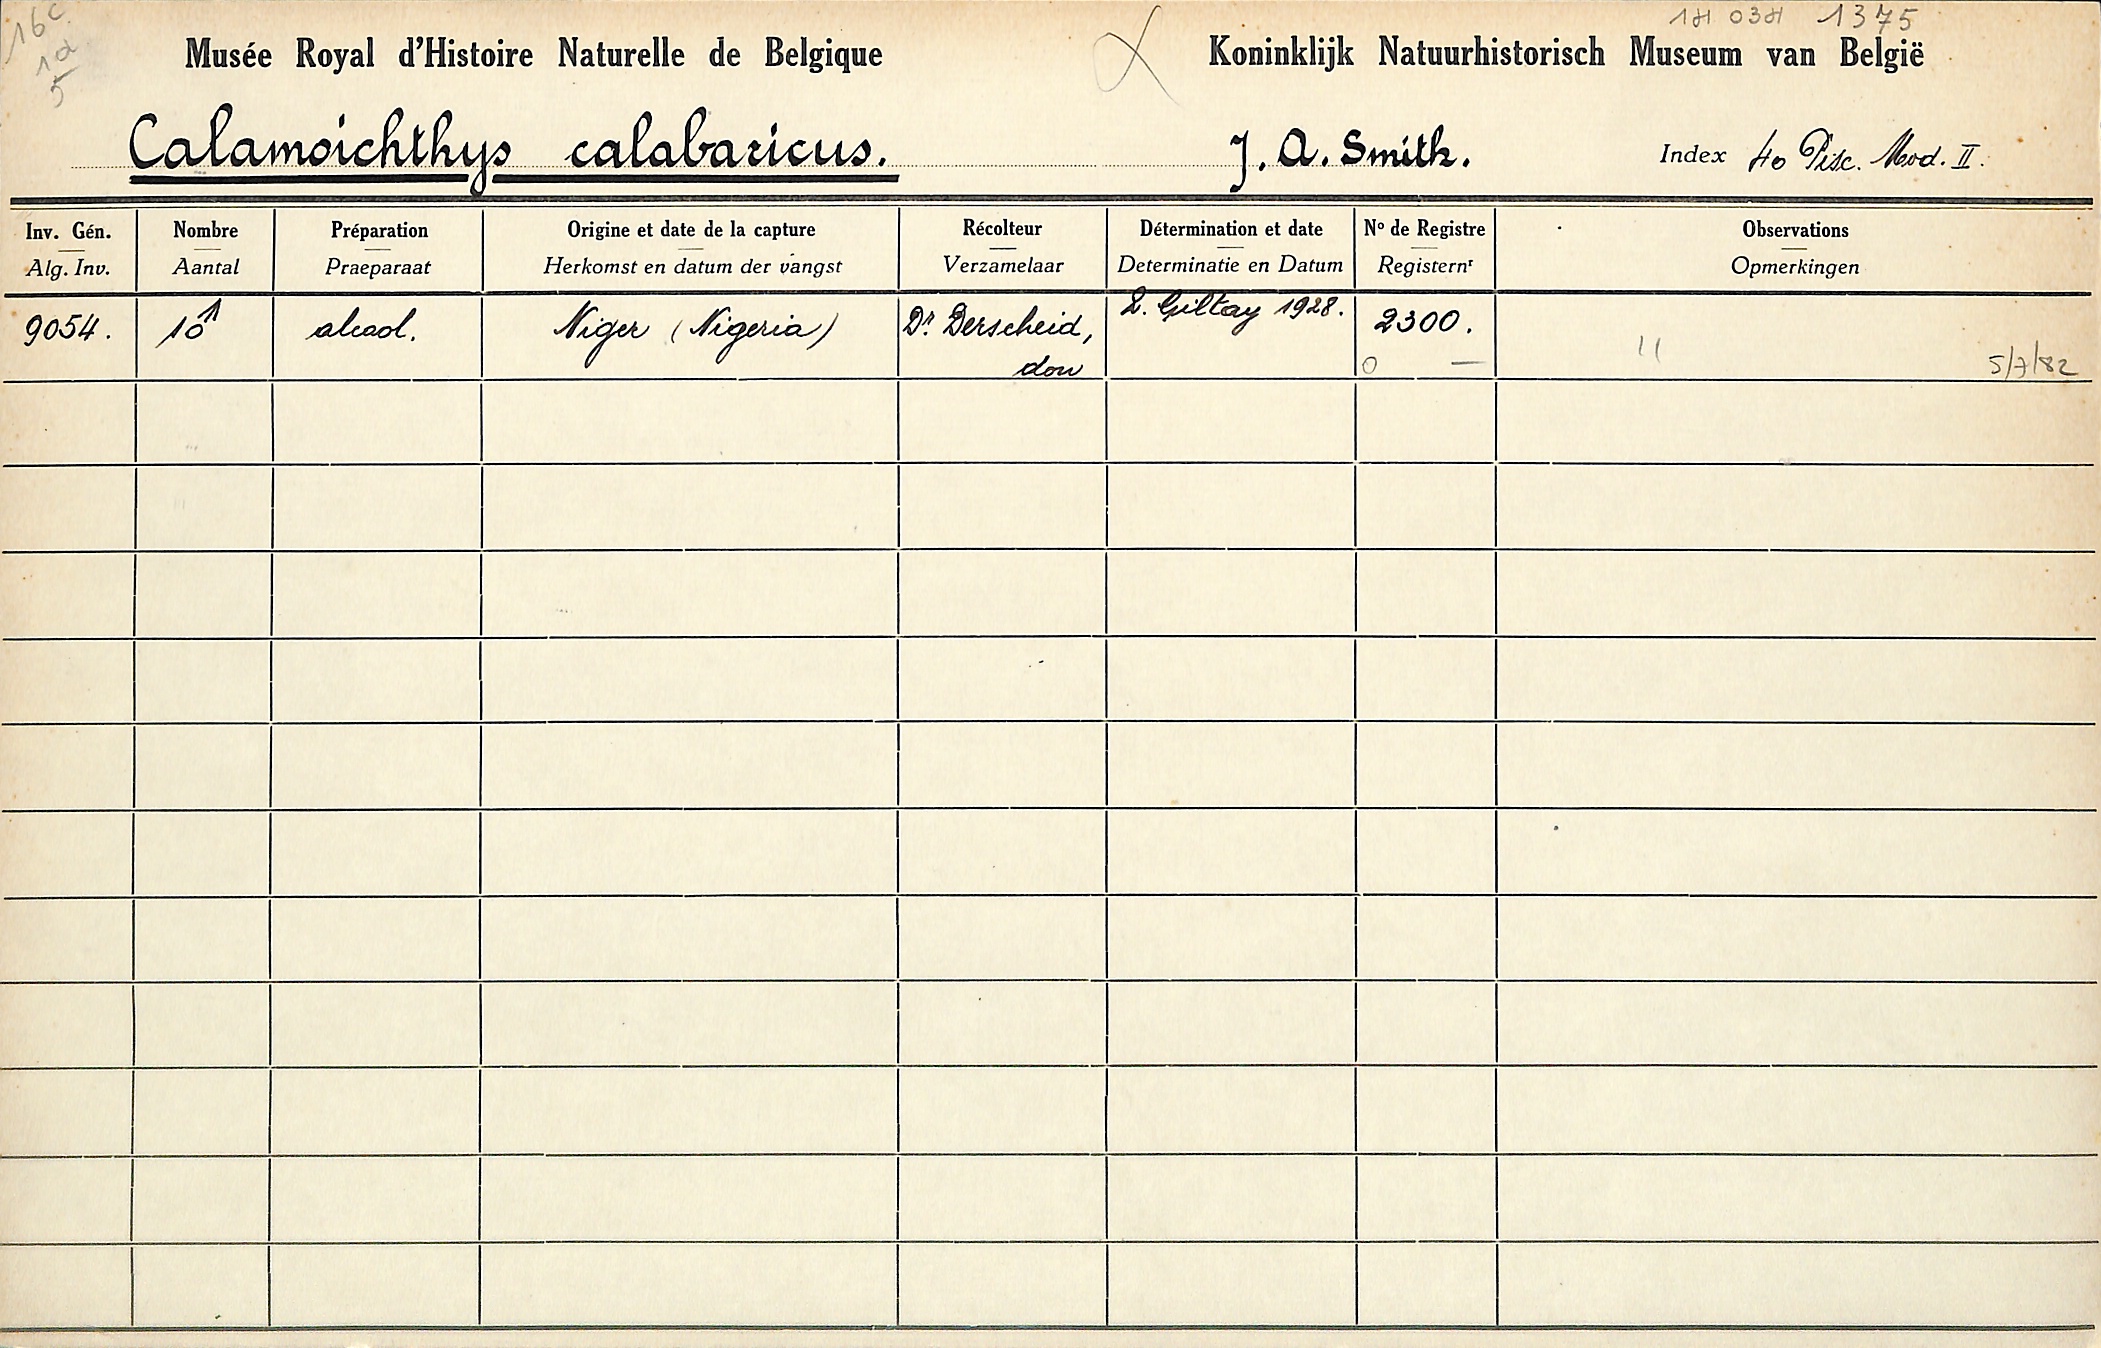 16c
1a
5
1375
Musée Royal d'Histoire Naturelle de Belgique
Koninklijk Natuurhistorisch Museum van België
Calamoichthys calabaricus. J. A. Smith. Index 40 Pisc. Mod. II.
Inv. Gén. Nombre Préparation Origine et date de la capture Récolteur Détermination et date Nº de Registre Observations
Alg. Inv. Aantal Praeparaat Herkomst en datum der vangst Verzamelaar Determinatie en Datum Registernr Opmerkingen
9054. alcool. Niger (Nigeria) Dr. Derscheid, L. Giltay 1928. 2300.
don 0 — 5/7/82